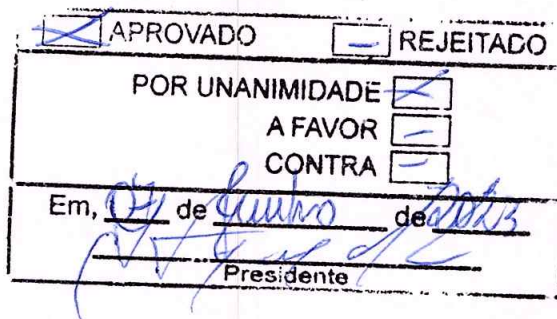 APROVADO REJEITADO
POR UNANIMIDADE
A FAVOR
CONTRA
Em, 07 de Junho de 2023
Presidente